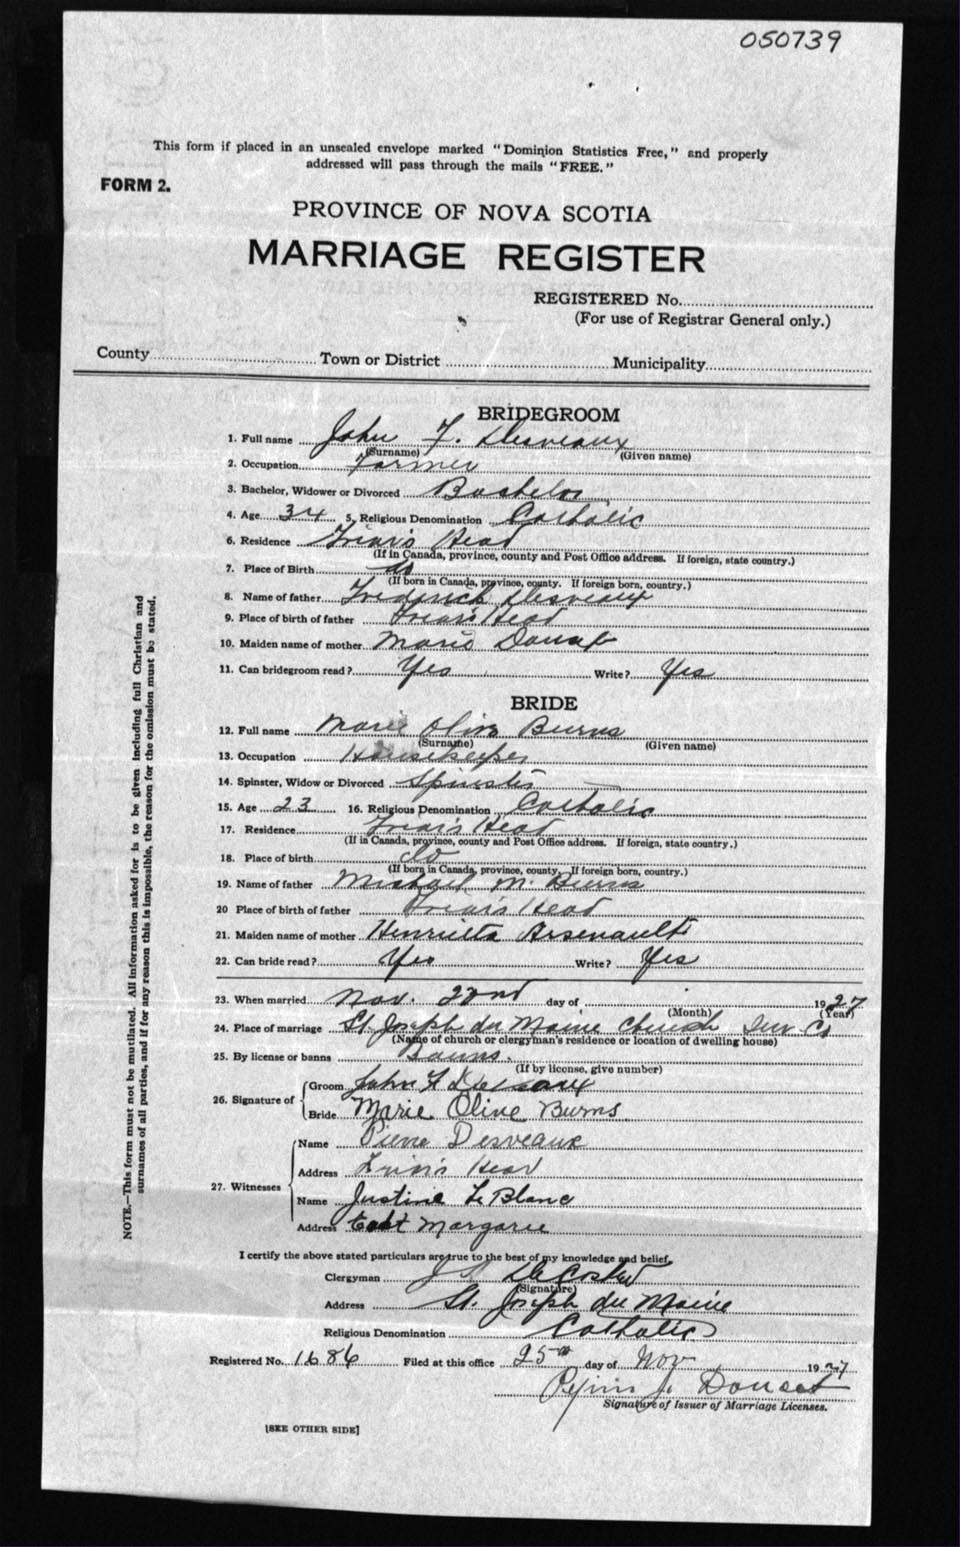 050739
This form if placed in an unsealed envelope marked "Dominion Statistics Free," and properly
addressed will pass through the mails "FREE."
FORM 2.
PROVINCE OF NOVA SCOTIA
MARRIAGE REGISTER
REGISTERED No.
(For use of Registrar General only.)
County Town or District Municipality
BRIDEGROOM
1. Full name John F. Desveaux
(Surname) (Given name)
2. Occupation Farmer
3. Bachelor, Widower or Divorced Bachelor
4. Age 34 5. Religious Denomination Catholic
6. Residence Friar's Head
(If in Canada, province, county and Post Office address. If foreign, state country.)
7. Place of Birth do
(If born in Canada, province, county. If foreign born, country.)
8. Name of father Frederick Desveaux
9. Place of birth of father Friar's Head
10. Maiden name of mother Marie
11. Can bridegroom read? Yes Write? Yes
BRIDE
12. Full name Marie Olive Burns
(Surname) (Given name)
13. Occupation Housekeeper
14. Spinster, Widow or Divorced Spinster
15. Age 23 16. Religious Denomination Catholic
17. Residence Friar's Head
(If in Canada, province, county and Post Office address. If foreign, state country.)
18. Place of birth do
(If born in Canada, province, county. If foreign born, country.)
19. Name of father Michael M. Burns
20 Place of birth of father Friar's Head
21. Maiden name of mother Henrietta Arsenault
22. Can bride read? Yes Write? Yes
23. When married Nov. 22nd day of 1927
(Month) (Year)
24. Place of marriage St. Joseph du Moine Church Inv. Co
(Name of church or clergyman's residence or location of dwelling house)
25. By license or banns Banns.
(If by license, give number)
26. Signature of
Groom John F Desveaux
Bride Marie Olive Burns
27. Witnesses
Name Pierre Desveaux
Address Friar's Head
Name Justine LeBlanc
Address East Margaree
I certify the above stated particulars are true to the best of my knowledge and belief.
Clergyman DeCoste
(Signature)
Address St. Joseph du Moine
Religious Denomination Catholic
Registered No. 1686 Filed at this office 25th day of Nov 1927
J. Doucet
Signature of Issuer of Marriage Licenses.
[SEE OTHER SIDE]
NOTE.—This form must not be mutilated. All information asked for is to be given including full Christian and
surnames of all parties, and if for any reason this is impossible, the reason for the omission must be stated.